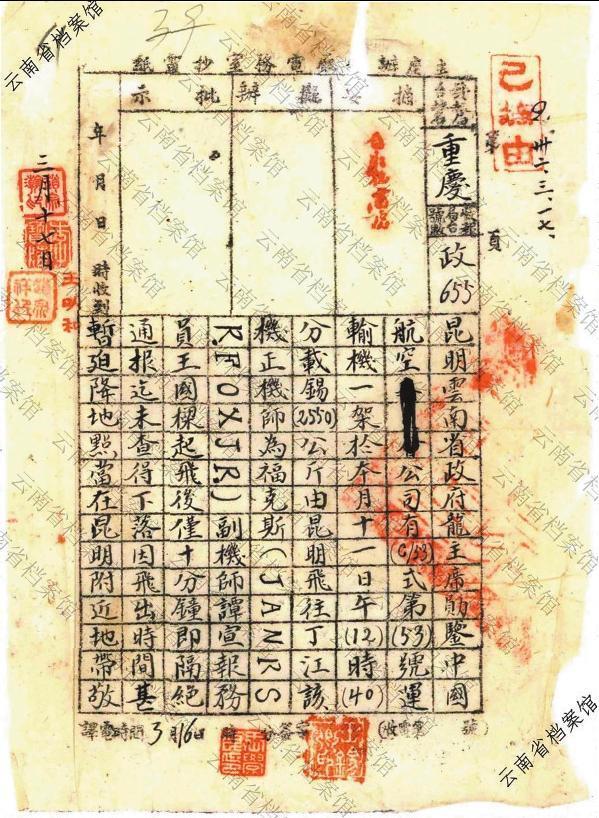 已摘由
卅二、三、一七、
第 頁
電務室抄電紙
重慶
政655
摘要
擬辦
批示
年月日時收到
三月十七日
王明和
昆明雲南省政府龍主席勛鑒中國
航空公司有(C/53)式第(53)號運
輸機一架於本月十一日午(12)時(40)
分載錫(2550)公斤由昆明飛往丁江該
機正機師為福克斯(JANRS
R.FOXJR)副機師譚宣報務
員王國樑起飛後僅十分鐘即隔絕
通報迄未查得下落因飛出時間甚
暫迫降地點當在昆明附近地帶敬
譯電時間3月16日
云南省档案馆